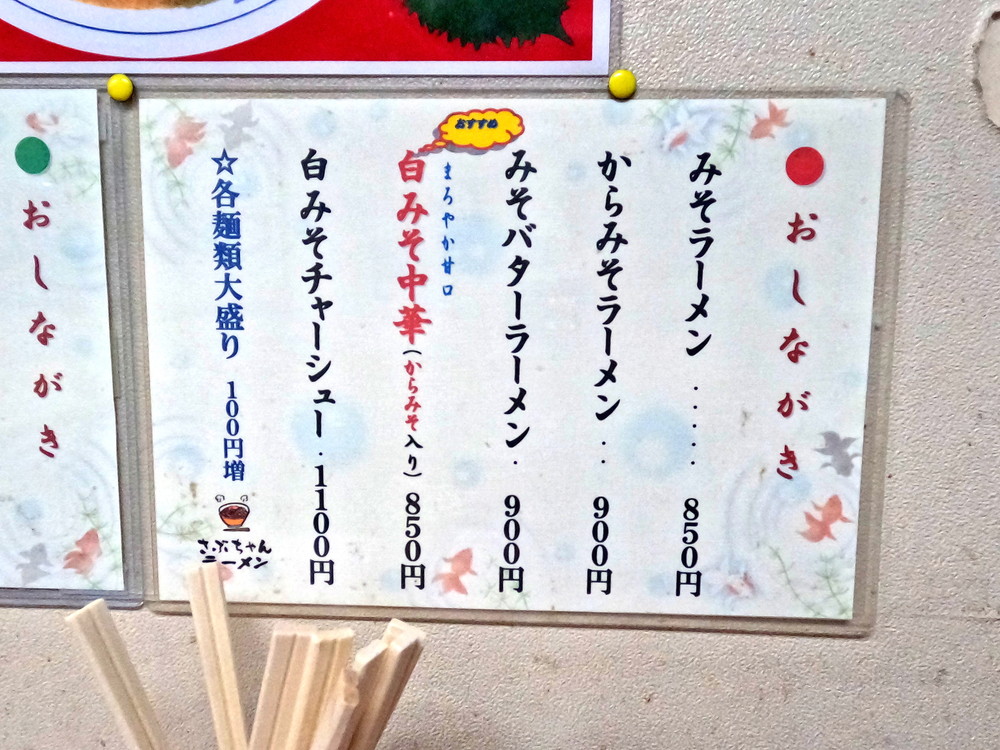 おしながき
みそラーメン ..... 850円
からみそラーメン .. 900円
みそバターラーメン . 900円
おすすめ
まろやか甘口
白みそ中華(からみそ入り) 850円
白みそチャーシュー . 1100円
☆各麺類大盛り 100円増
さぶちゃん
ラーメン
おしながき